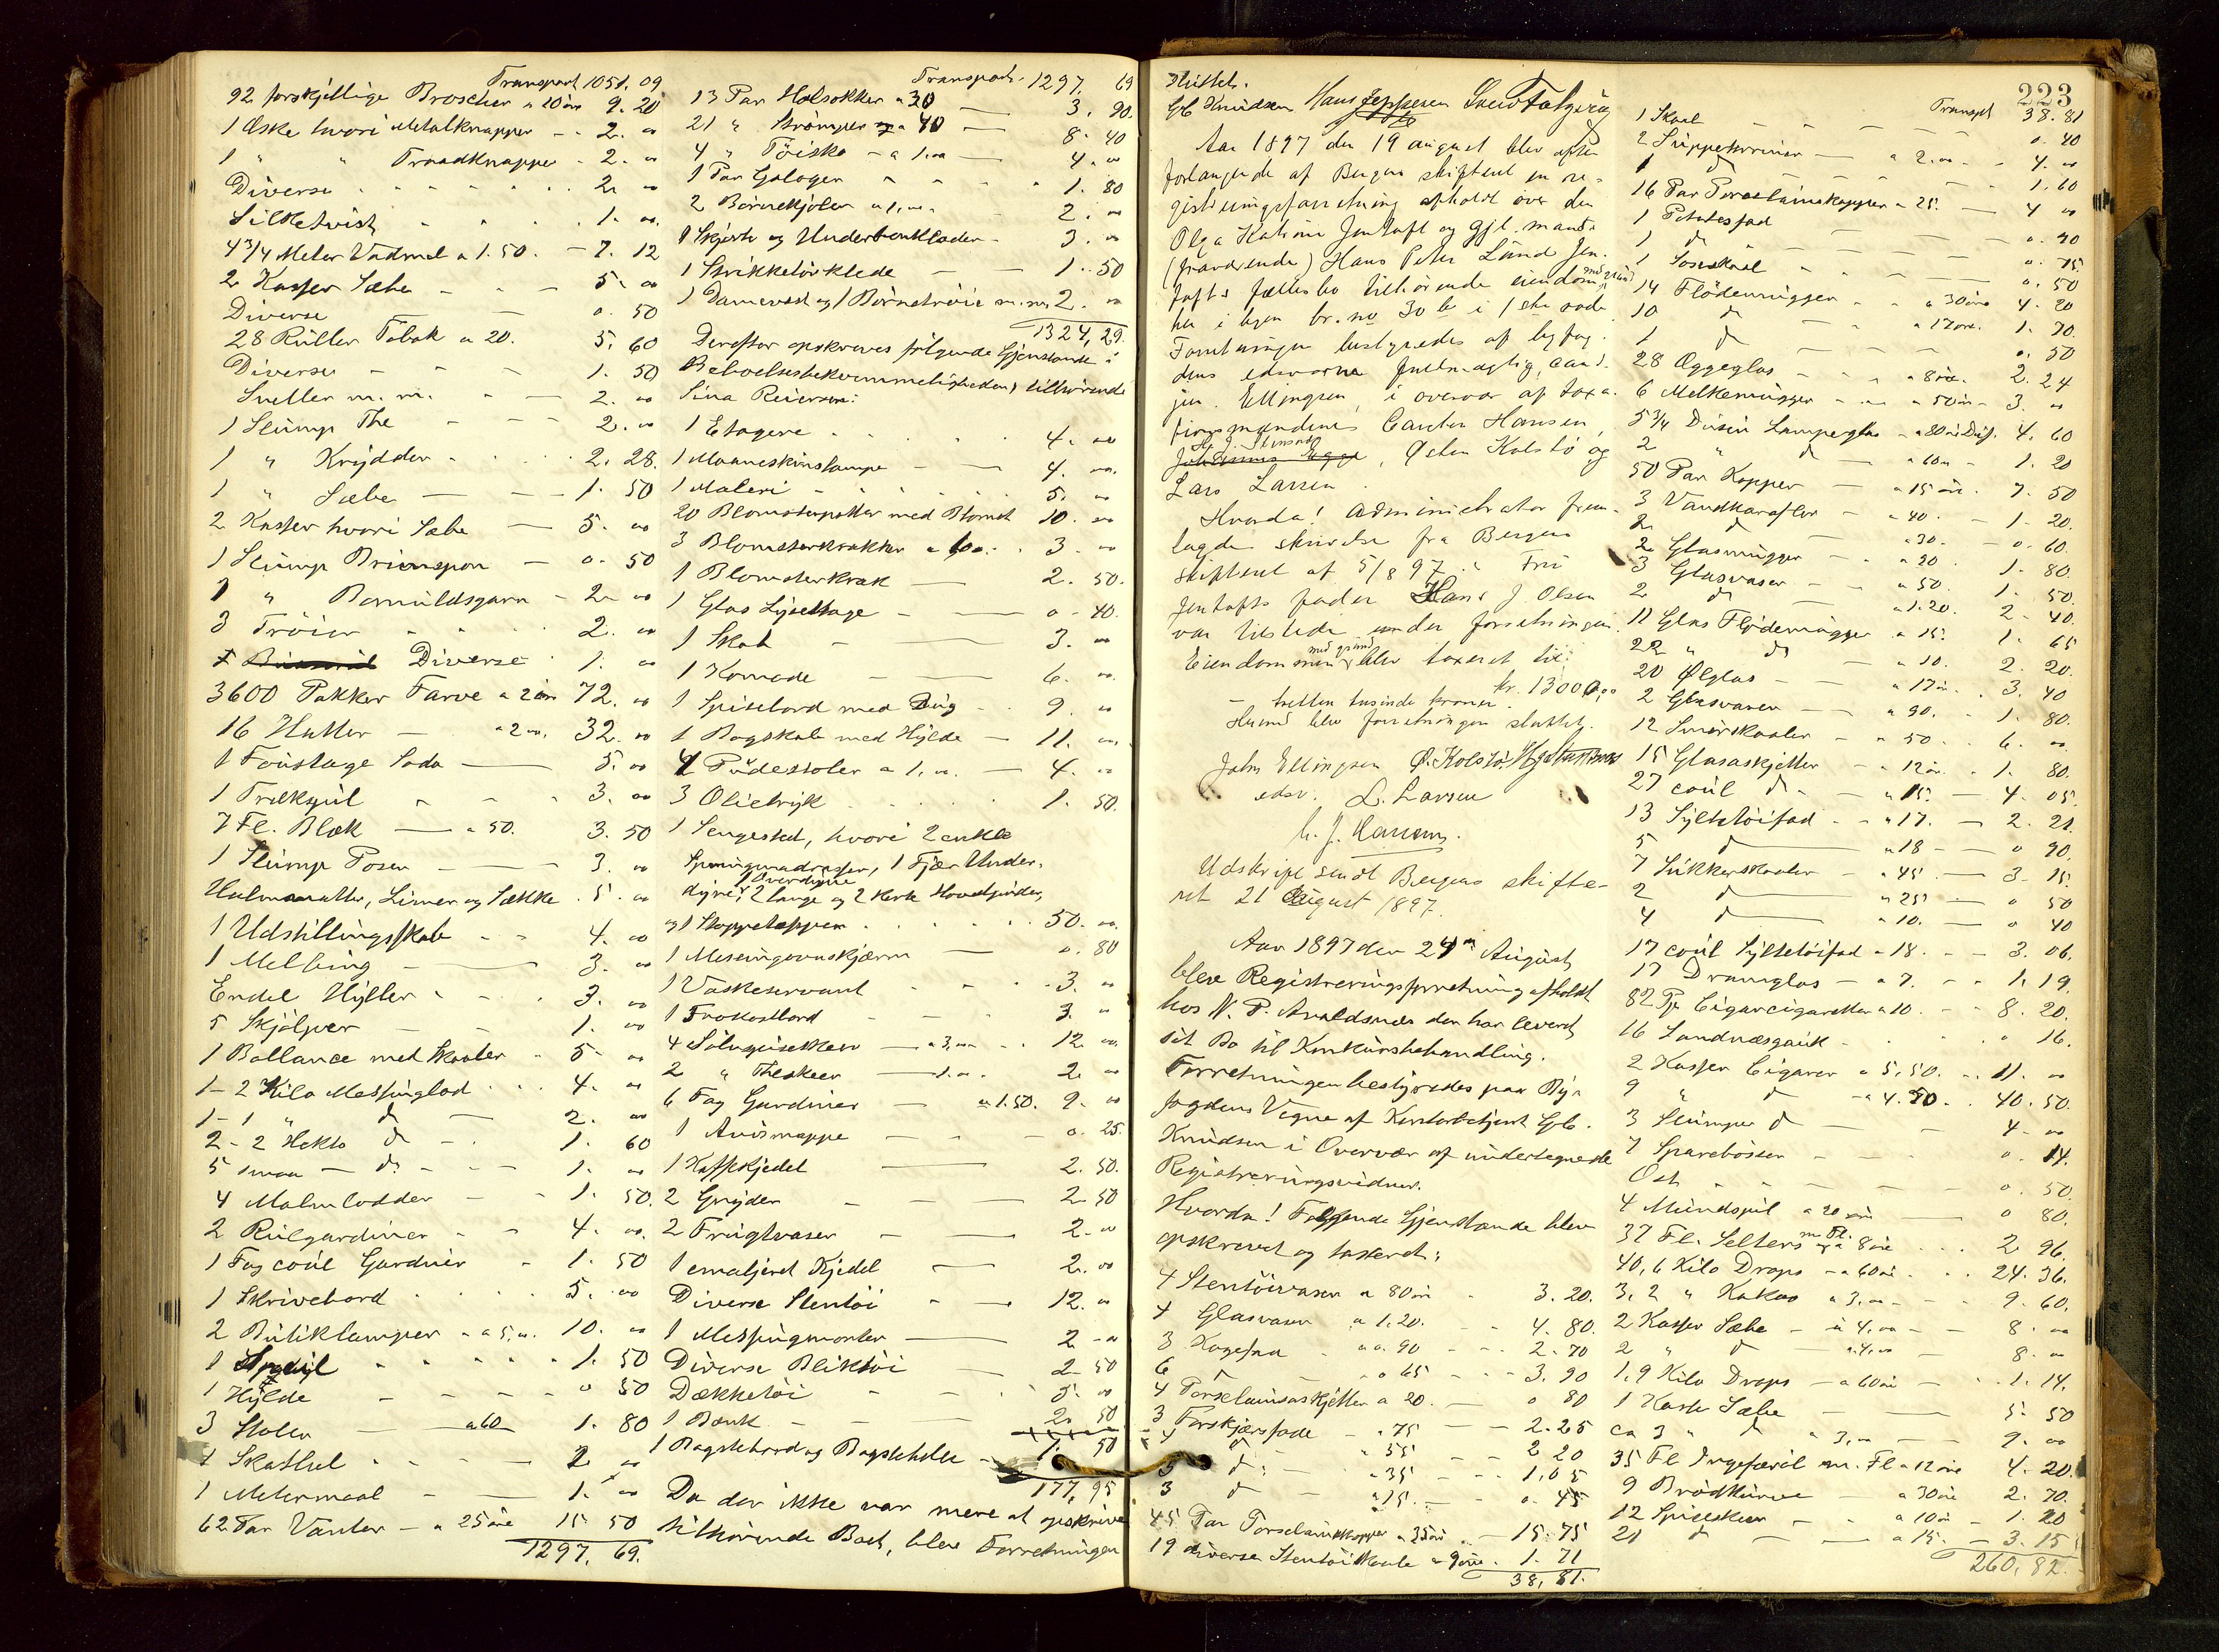 Transport 1051. 09
92 forskjellige Broscher a 10 øre 9. 20
1 Æske hvori Metalknapper - - 2. 00
1 " " Traadknapper - 2. 00
Diverse 2. 00
Silketvist 1. 00
4 3/4 Meter Vadmel a 1.50. - 7. 12
2 Kasser Sæbe 5. 00
Diverse 0. 50
28 Ruller Tobak a 20. 5. 60
Diverse 1. 50
Sneller m. m. 2. 00
1 Slump The 2. 00
1 " Krydder 2. 28.
1 " Sæbe 1. 50
2 Kasser hvori Sæbe 5. 00
1 Slump Brunspon 0. 50
1 " Bomuldsgarn - 2. 00
3 Trøier 2. 00
Diverse 1. 00
3600 Pakker Farve a 2 øre 72. 00
16 Hatter a 2.00. 32. 00
1 Foustage Soda 5. 00
1 Trækspil 3. 00
7 Fl. Blæk a 50. 3. 50
1 Slump Poser 3. 00
Halmmatter, Limer og Sække 5. 00
1 Udstillingsskab 4. 00
1 Melbing 3. 00
Endel Hylter 3. 00
5 Skjølper 1. 00
1 Ballance med Skaaler 5. 00
1 - 2 Kilo Messinglod 4. 00
1 - 1 " do 2. 00
2 - 2 Hekto do 1. 60
5 smaa - do. 1. 00
4 Malmlodder 1. 50.
2 Rulgardiner 4. 00
1 Fag coul Gardiner 1. 50
1 Skrivebord 5. 00
2 Butiklamper a 5.00. 10. 00
1 Speil 1. 50
1 Hylde 0 50
3 Stoler a 60 1. 80
1 Skathul 2. 00
1 Metermaal 1. 00
62 Par Vanter - a 25 øre 15 50
1297. 69.
Transport 1297. 69
13 Par Halsokker a 30 3. 90.
21 " Strømper a 40 8. 40
4 " Tøisko - a 1.00 4. 00
1 Par Galoger 1. 80
2 Børnekjoler a 1.00. 2. 00
1 Skjørt og Underbenklæder 3. 00
1 Strikketørklede 1. 50
1 Damevest og 1 Børnetrøie m.m. 2. 00
1324, 29.
Derefter opskreves følgende Gjenstande i
Beboelsesbekvemmeligheden, tilhørende
Sina Reiersen:
1 Etagere 4. 00
1 Maaneskinslampe 4. 00.
1 Maleri 5. 00
20 Blomsterpotter med Blomst 10. 00
3 Blomsterkrakker a 1.00. 3. 00
1 Blomsterkrak 2. 50.
1 Glas Lysestage 0 - 40.
1 Skab 3. 00
1 Komode 6. 00.
1 Spisebord med Dug 9. 00
1 Bogskab med Hylde 11. 00.
4 Pudestoler a 1.00. 4. 00
3 Olietryk 1. 50.
1 Sengested, hvori 2 enkle
Springmadrasser, 1 Fjær Under-
1 Overdyne
dyne, 2 lange og 2 korte Hovedpuder,
og 1 Stoppetæppen 50. 00.
1 Messingovnskjærm 0. 80
1 Vaskeservant 3. 00
1 Frokostbord 3. 00
4 Sølvspiseskeer a 3.00 12. 00.
2 " Theskeer 1.00. 2. 00
6 Fag Gardiner a 1.50. 9. 00
1 Avismappe 0. 25.
1 Kaffekjedel 2. 50.
2 Gryder 2. 50
2 Frugtvaser 2. 00
1 emaljeret Kjedel 2. 00
Diverse Stentøi 12. 00
1 Messingmorter 2. 00
Diverse Bliktøi 2. 50
Dækketøi 5. 00
1 Bænk 2. 50
1 Bagstebord og Bagstehelle 1. 50
177, 95
Da der ikke var mere at opskrive
tilhørende Boet, blev Forretningen
223
sluttet.
Gb Knudsen Hans Jeppesen
Aar 1897 den 19 august blev efter
forlangende af Bergens skifteret en re-
gistreringsforretning afholdt over den
Olga Katrine Jentoft og gjl. mands
(fraværende) Hans Peter Lund Jen-
tofts fællesbo tilhørende eiendom med grund
her i byen br. no 30 b i 1ste rode.
Forretningen bestyredes af byfog-
dens edsvorne fuldmægtig, cand.
jur. Ellingsen, i overvær af taxa-
tionsmændene Carsten Hansen,
Østen Kolstø og
Lars Larsen.
Hvorda! Administrator frem-
lagde skrivelse fra Bergens
skifteret af 5/8 97. Fru
Jentofts fader Hans J Olsen
var tilstede under forretningen.
Eiendommen med grund blev taxeret til:
kr. 13000,00
- tretten tusinde kroner.
Hermed blev forretningen sluttet.
John Ellingsen Ø. Kolstø
edsv. L. Larsen
C. J. Hansen.
Udskript sendt Bergens skifte-
ret 21 August 1897.
Aar 1897 den 24de August
blev Registreringsforretning afholdt
hos N. P. Avaldsnes der har leveret
sit Bo til Konkursbehandling.
Forretningen bestyredes paa By-
fogdens Vegne af Kontorbetjent Gb.
Knudsen i Overvær af undertegnede
Registreringsvidner.
Hvorda! Følgende Gjenstande blev
opskrevet og taxeret:
4 Stentøivaser a 80 øre 3. 20.
4 Glasvaser a 1.20. 4. 80.
3 Kagefad a 0. 90 2. 70
6 do a 65 3. 90
4 Porselainsaskjetter a 20. 0 80
3 Forskjærsfade a 75 2. 25
4 do a 55 2 20
3 do a 35 1, 05
3 do a 15. 0. 45
45 Par Porselainskopper a 35 øre 15. 75
19 diverse Stentøiskaale a 9 øre. 1. 71
38, 81.
Transpt 38. 81
1 Skaal 0. 40
2 Suppeterriner a 2.00 4. 00
1 do 1, 60
16 Par Porselainskopper a 25. 4 00
1 Potetesfad 0. 90
1 do 0. 75.
1 Soseskaal 0. 50
14 Flødemugger a 30 øre 4. 20
10 do a 17 øre. 1. 70.
1 do 0. 50
28 Æggeglas a 8 øre. 2. 24
6 Melkemugger a 50 øre 3. 00
5 3/4 Dusin Lampeglas a 80 øre Dus. 4. 60
2 " do a 60 1. 20
50 Par Kopper a 15 øre. 7. 50
3 Vandkarafler a 40. 1. 20.
2 do a 30. 0. 60.
2 Glasmugger a 90 1. 80.
3 Glasvaser a 50 1. 50.
2 do a 1.20. 2. 40.
11 Glas Flødemugger a 15. 1. 65
22 " do a 10. 2. 20.
20 Ølglas a 17 ø. 3. 40
2 Glasvaser a 90. 1. 80.
12 Smørskaaler a 50 6. 00.
15 Glasaskjetter a 12 øre. 1. 80.
27 coul do a 15. 4. 05.
13 Syltetøifad a 17. 2. 21.
5 do a 18 0 90.
7 Sukkerskaaler a 45 3. 15.
2 do a 25 0 50
4 do a 10. 0 40
17 coul Syltetøifad a 18. 3. 06.
17 Dramglas a 7. 1. 19.
82 Pk Cigarcigaretter a 10 8. 20.
16 " 16.
2 Kasser Cigarer a 5.50. 11. 00
9 " do a 4.50 40. 50.
3 Slumper do 4. 00
7 Sparebøsser 0. 14.
Ost 0. 50.
4 Mundspil a 20 øre 0 80.
37 Fl. Selters m Fl. a 8 øre 2. 96.
40,6 Kilo Drops a 60 øre 24. 36.
3,2 " Kakao a 3,00 9. 60.
2 Kasser Sæbe a 4.00 8. 00
2 " do a 4.00 8. 00
1,9 Kilo Drops a 60 øre 1. 14.
1 Kasse Sæbe 5. 50
ca 3 " do a 3,00 9. 00
35 Fl Ingeferøl m. Fl a 12 øre 4. 20.
9 Brødkurve a 30 øre 2. 70.
12 Spiseskeer a 10 ø 1. 20
21 do a 15. 3. 15
260, 82.